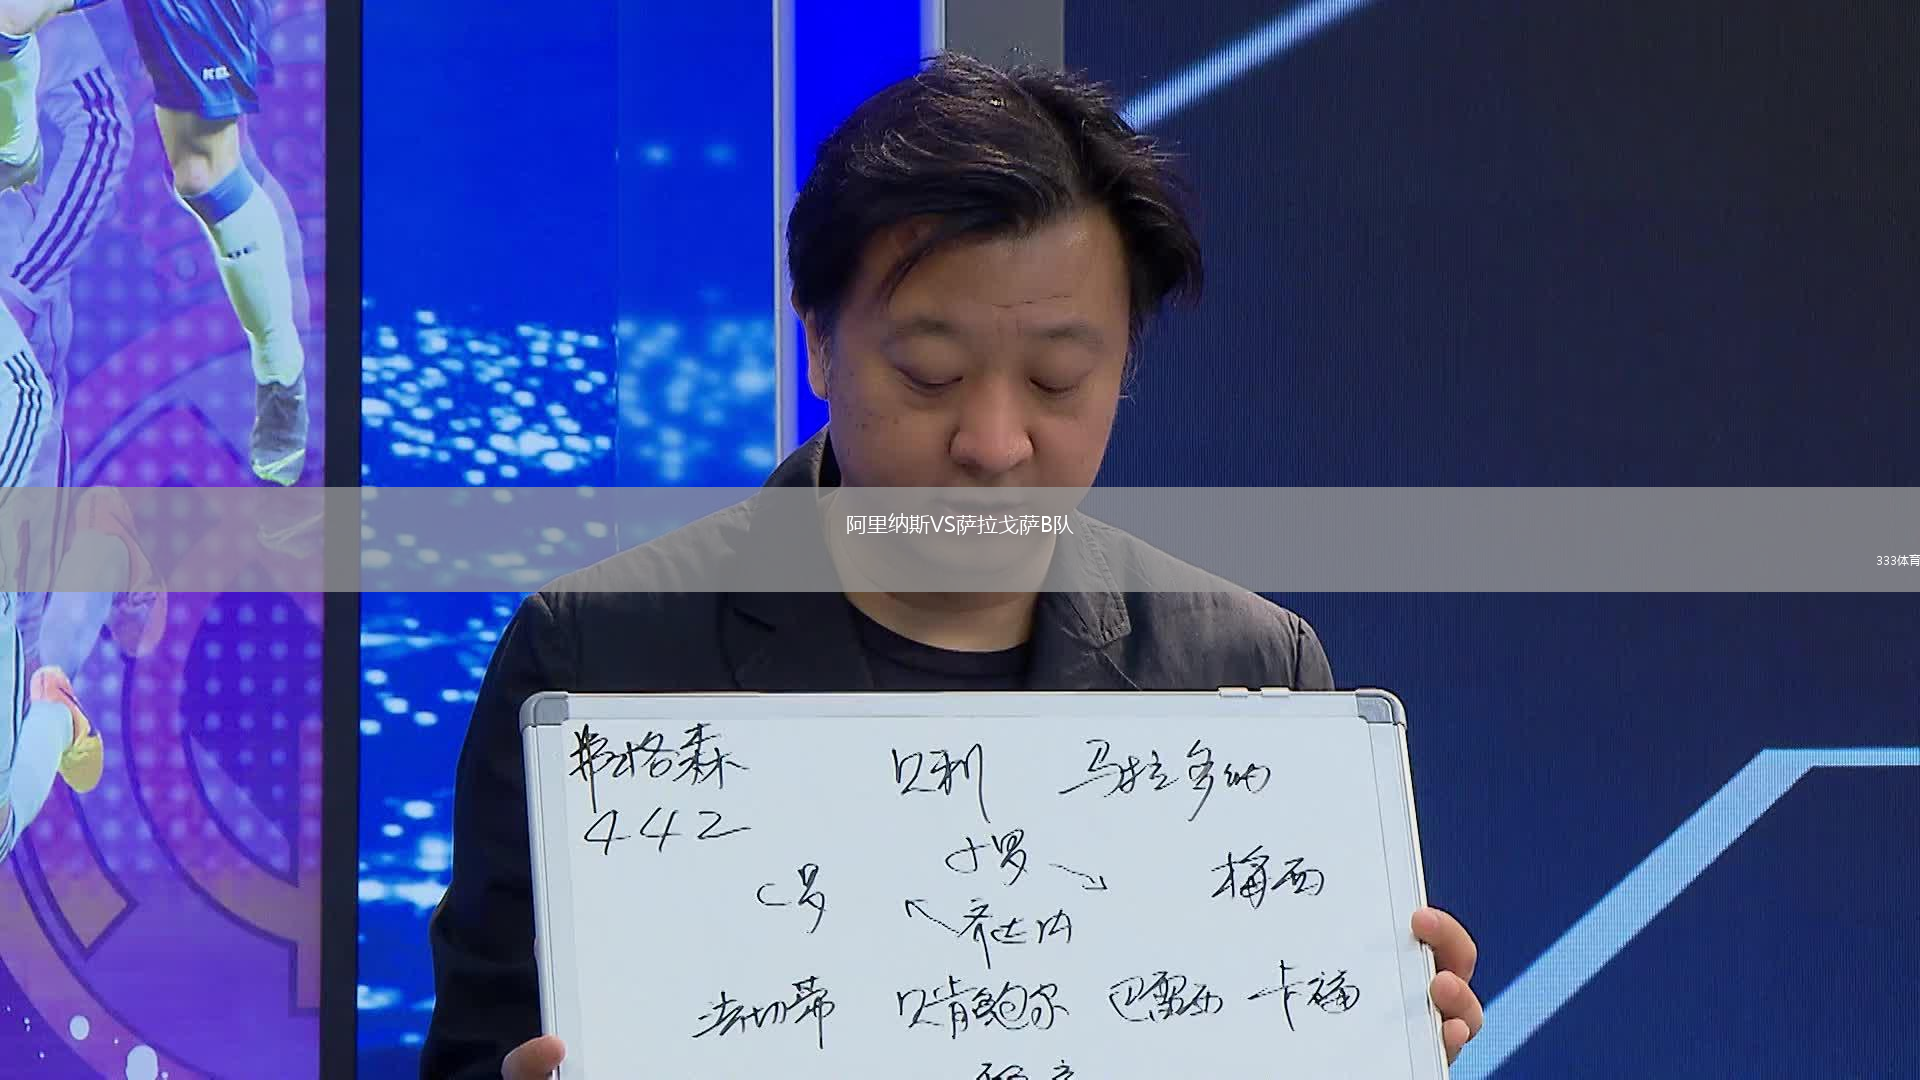 KEL
阿里纳斯VS萨拉戈萨B队
333体育
弗格森 贝利 马拉多纳
442
C罗 小罗 梅西
齐达内
法切蒂 贝肯鲍尔 巴雷西 卡福